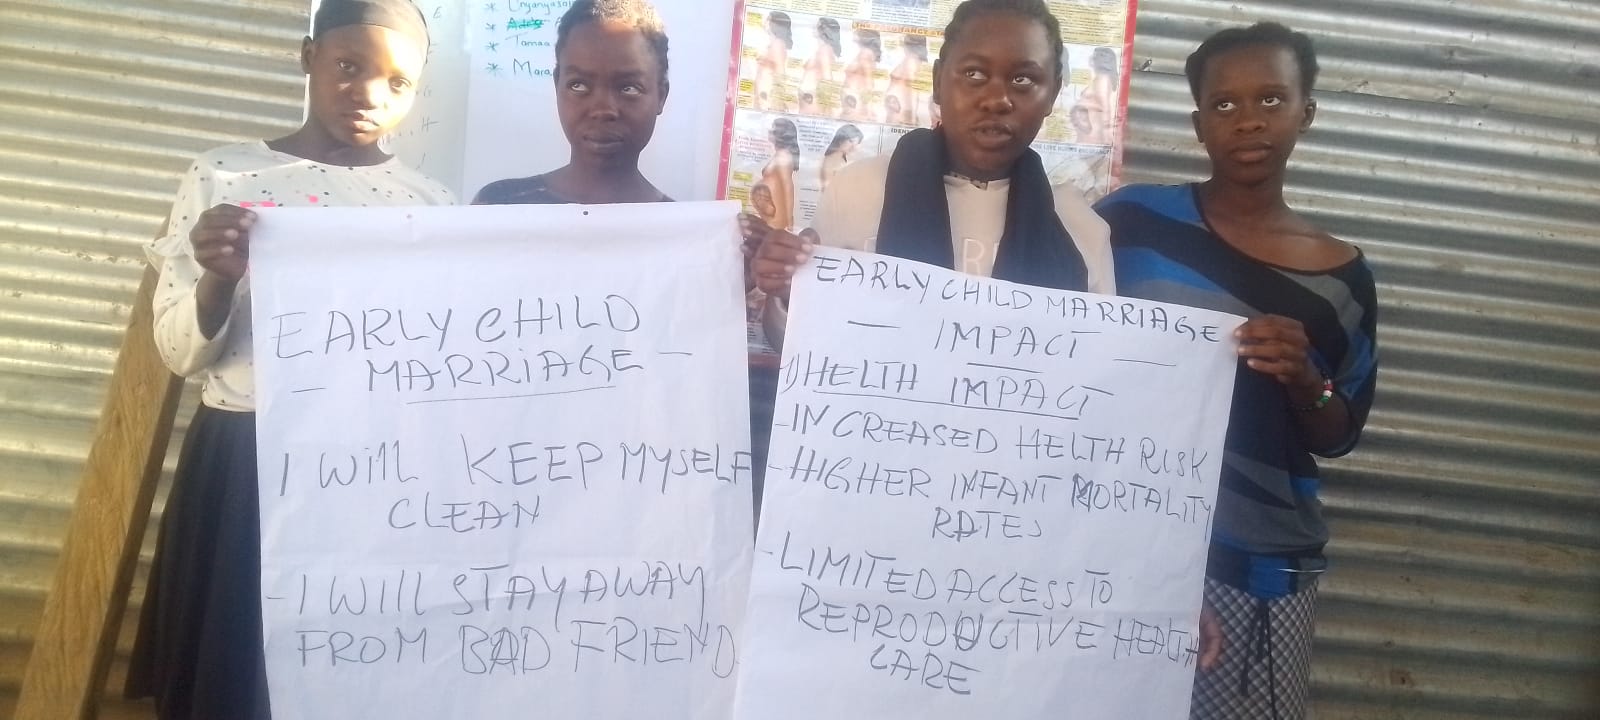 E
H
* Unyanyasaji
*
* Tamaa
* Mara
THE PREGNANCY
EARLY CHILD
- MARRIAGE -
I WILL KEEP MYSELF
CLEAN
- I WILL STAY AWAY
FROM BAD FRIEND
EARLY CHILD MARRIAGE
- IMPACT -
1) HELTH IMPACT
- INCREASED HELTH RISK
- HIGHER INFANT MORTALITY
RATES
- LIMITED ACCESS TO
REPRODUCTIVE HEALTH
CARE